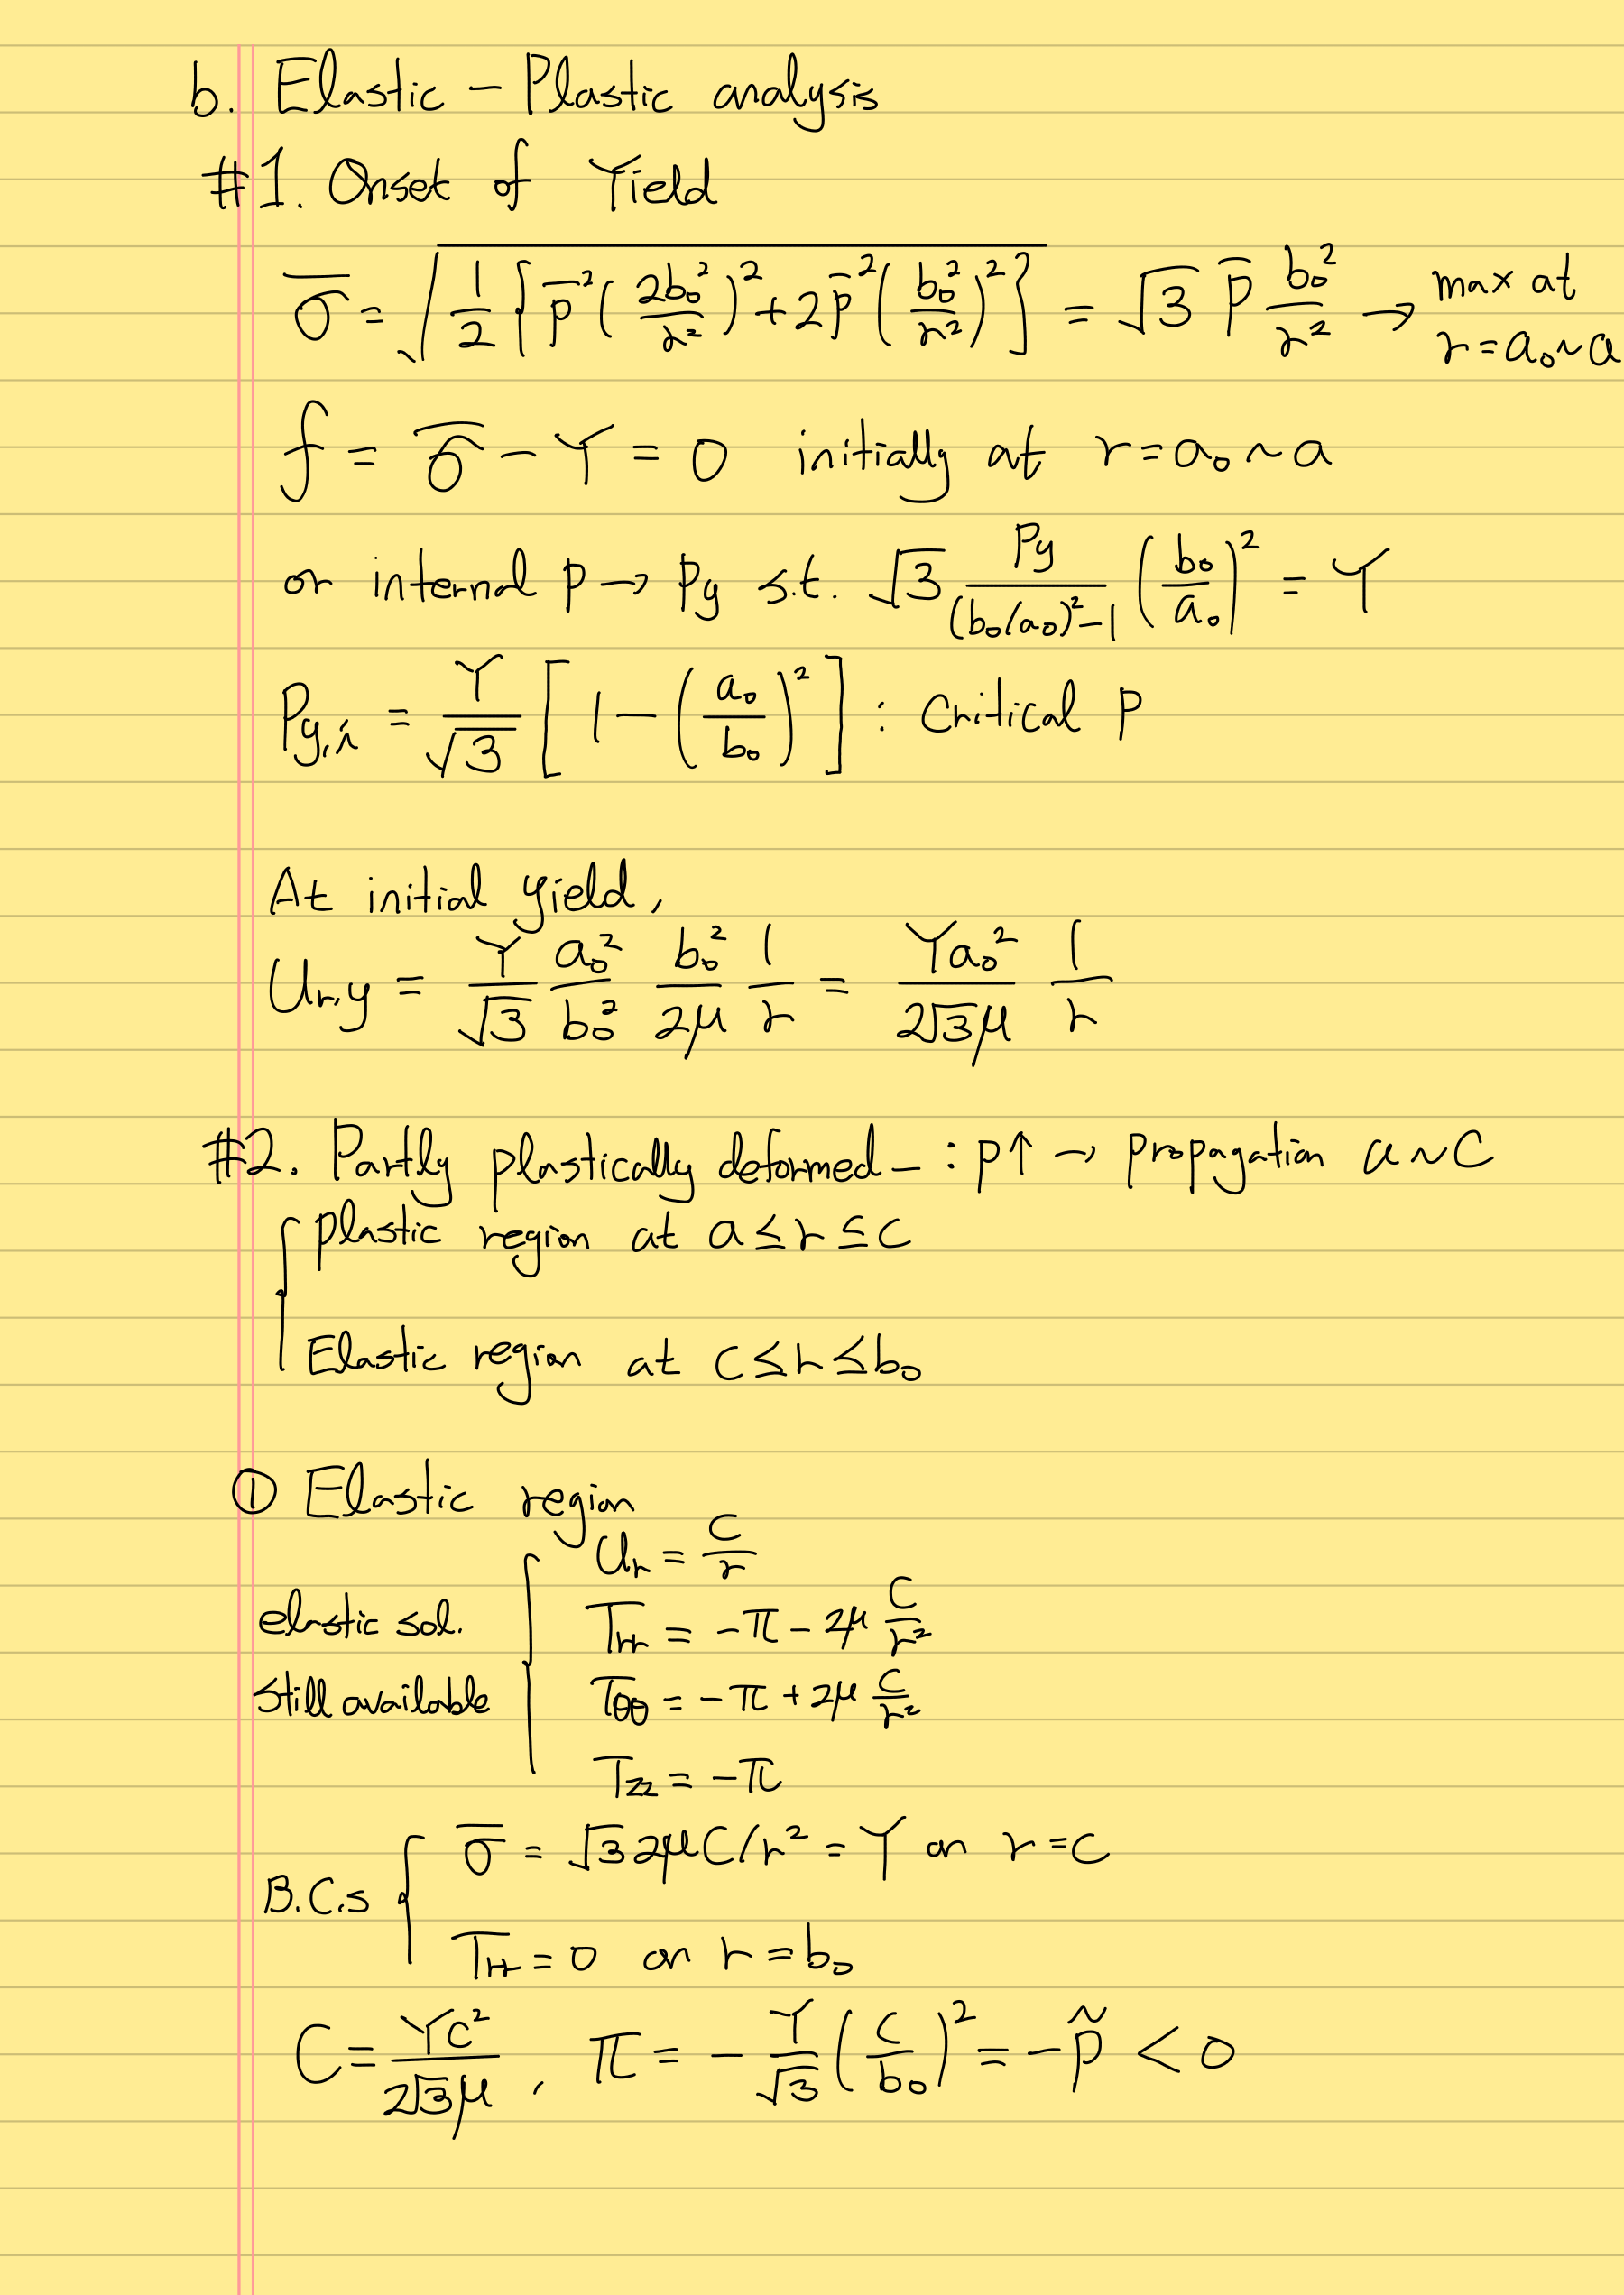 b. Elastic - Plastic analysis
#1. Onset of Yield
σ̅ = √(1/2 {p̅²(2b₀²/r²)² + 2p̅²(b₀²/r²)²}) = √3 p̅ b₀²/r² → max at r=a₀~a
f = σ̅ - Y = 0 initially at r=a₀~a
or internal p → Py s.t. √3 Py/((b₀/a₀)²-1) (b₀/a₀)² = Y
Py,i = Y/√3 [1-(a₀/b₀)²] : Critical P
At initial yield,
Ur,y = Y/√3 a₀²/b₀² b₀²/2μ 1/r = Ya₀²/2√3μ 1/r
#2. Partly plastically deformed - : p↑ → propagation a~c
plastic region at a≤r≤c
Elastic region at c≤r≤b₀
① Elastic region
Ur = C/r
elastic sol.
Trr = -π - 2μ C/r²
still available
Tθθ = -π + 2μ C/r²
Tzz = -π
σ̅ = √3 2μC/r² = Y on r=c
B.C.s
Trr = 0 on r=b₀
C = Yc²/2√3μ , π = - Y/√3 (c/b₀)² = -p̃ < 0